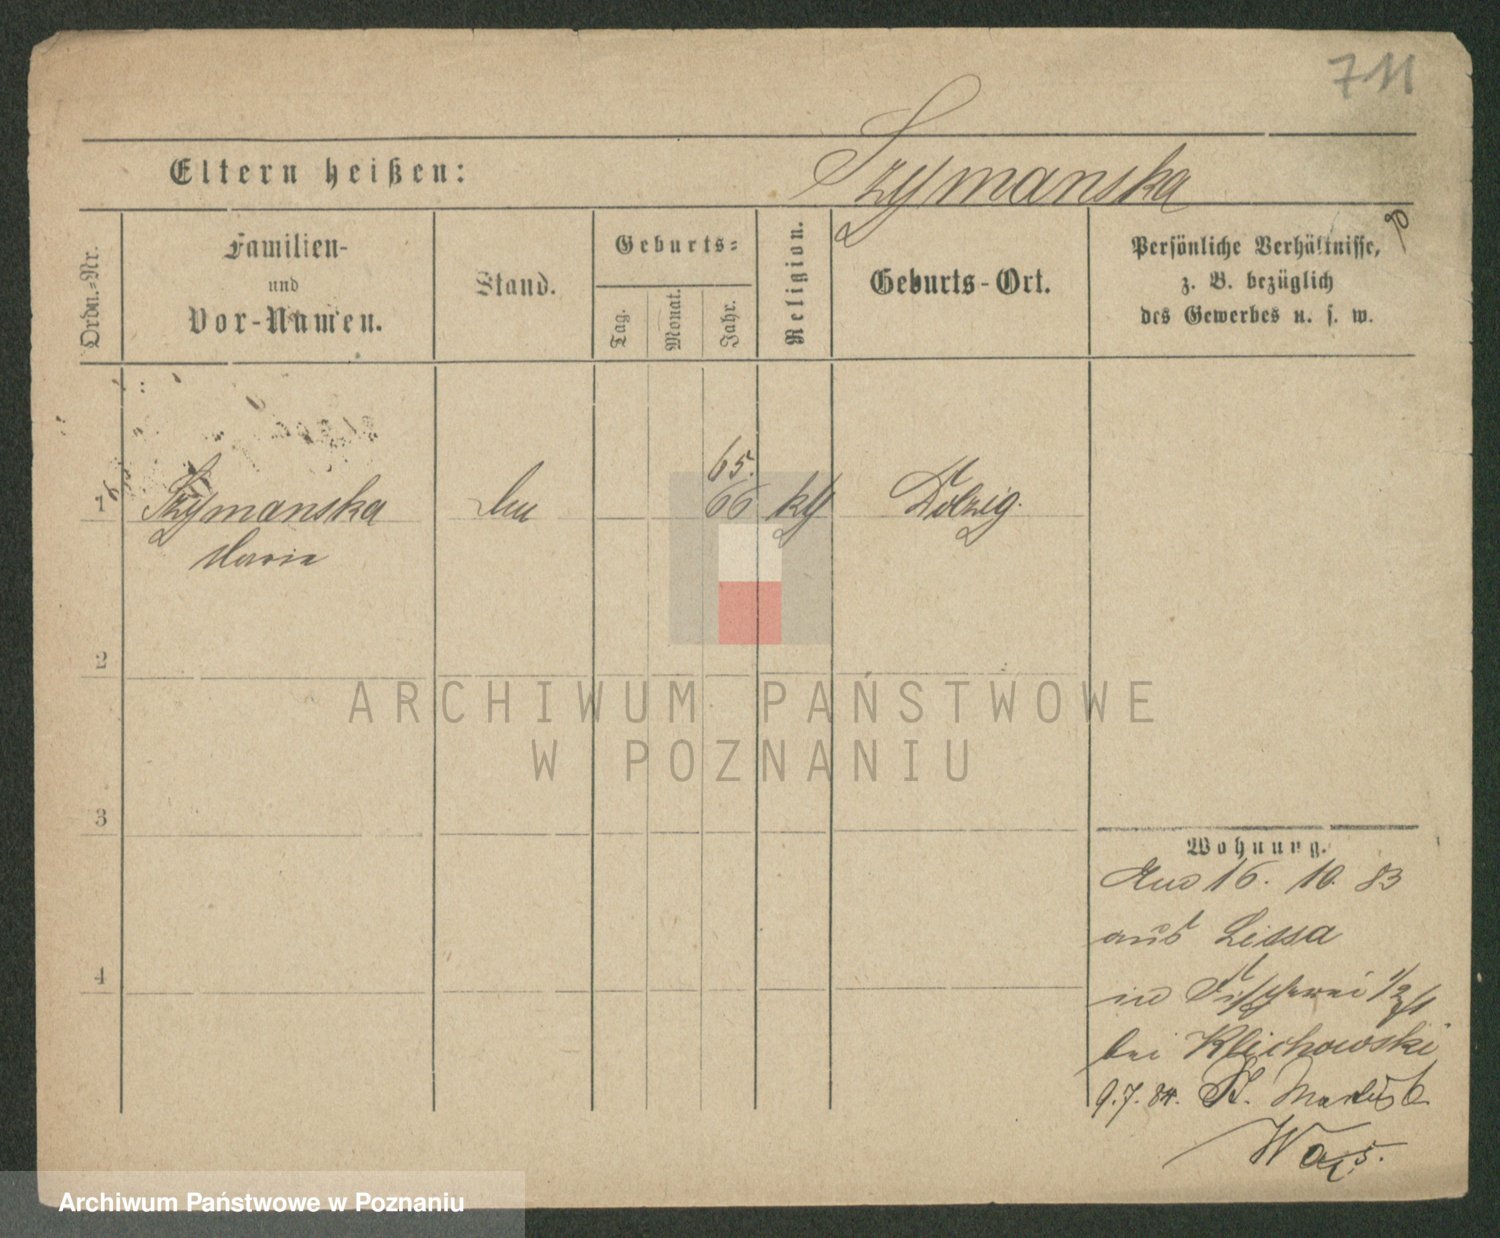 711
Eltern heißen: Szymanska
Ordn.-Nr.
Familien-
und
Vor-Namen.
Stand.
Geburts-
Tag.
Monat.
Jahr.
Religion.
Geburts-Ort.
Persönliche Verhältnisse,
z. B. bezüglich
des Gewerbes u. s. w.
65.
1 Szymanska 66 Dolzig.
Maria
2
3
4
Wohnung.
16. 10. 83
aus Lissa
in Fischerei
bei Klichowski
9.7.84. St. Martin
ARCHIWUM PAŃSTWOWE
W POZNANIU
Archiwum Państwowe w Poznaniu